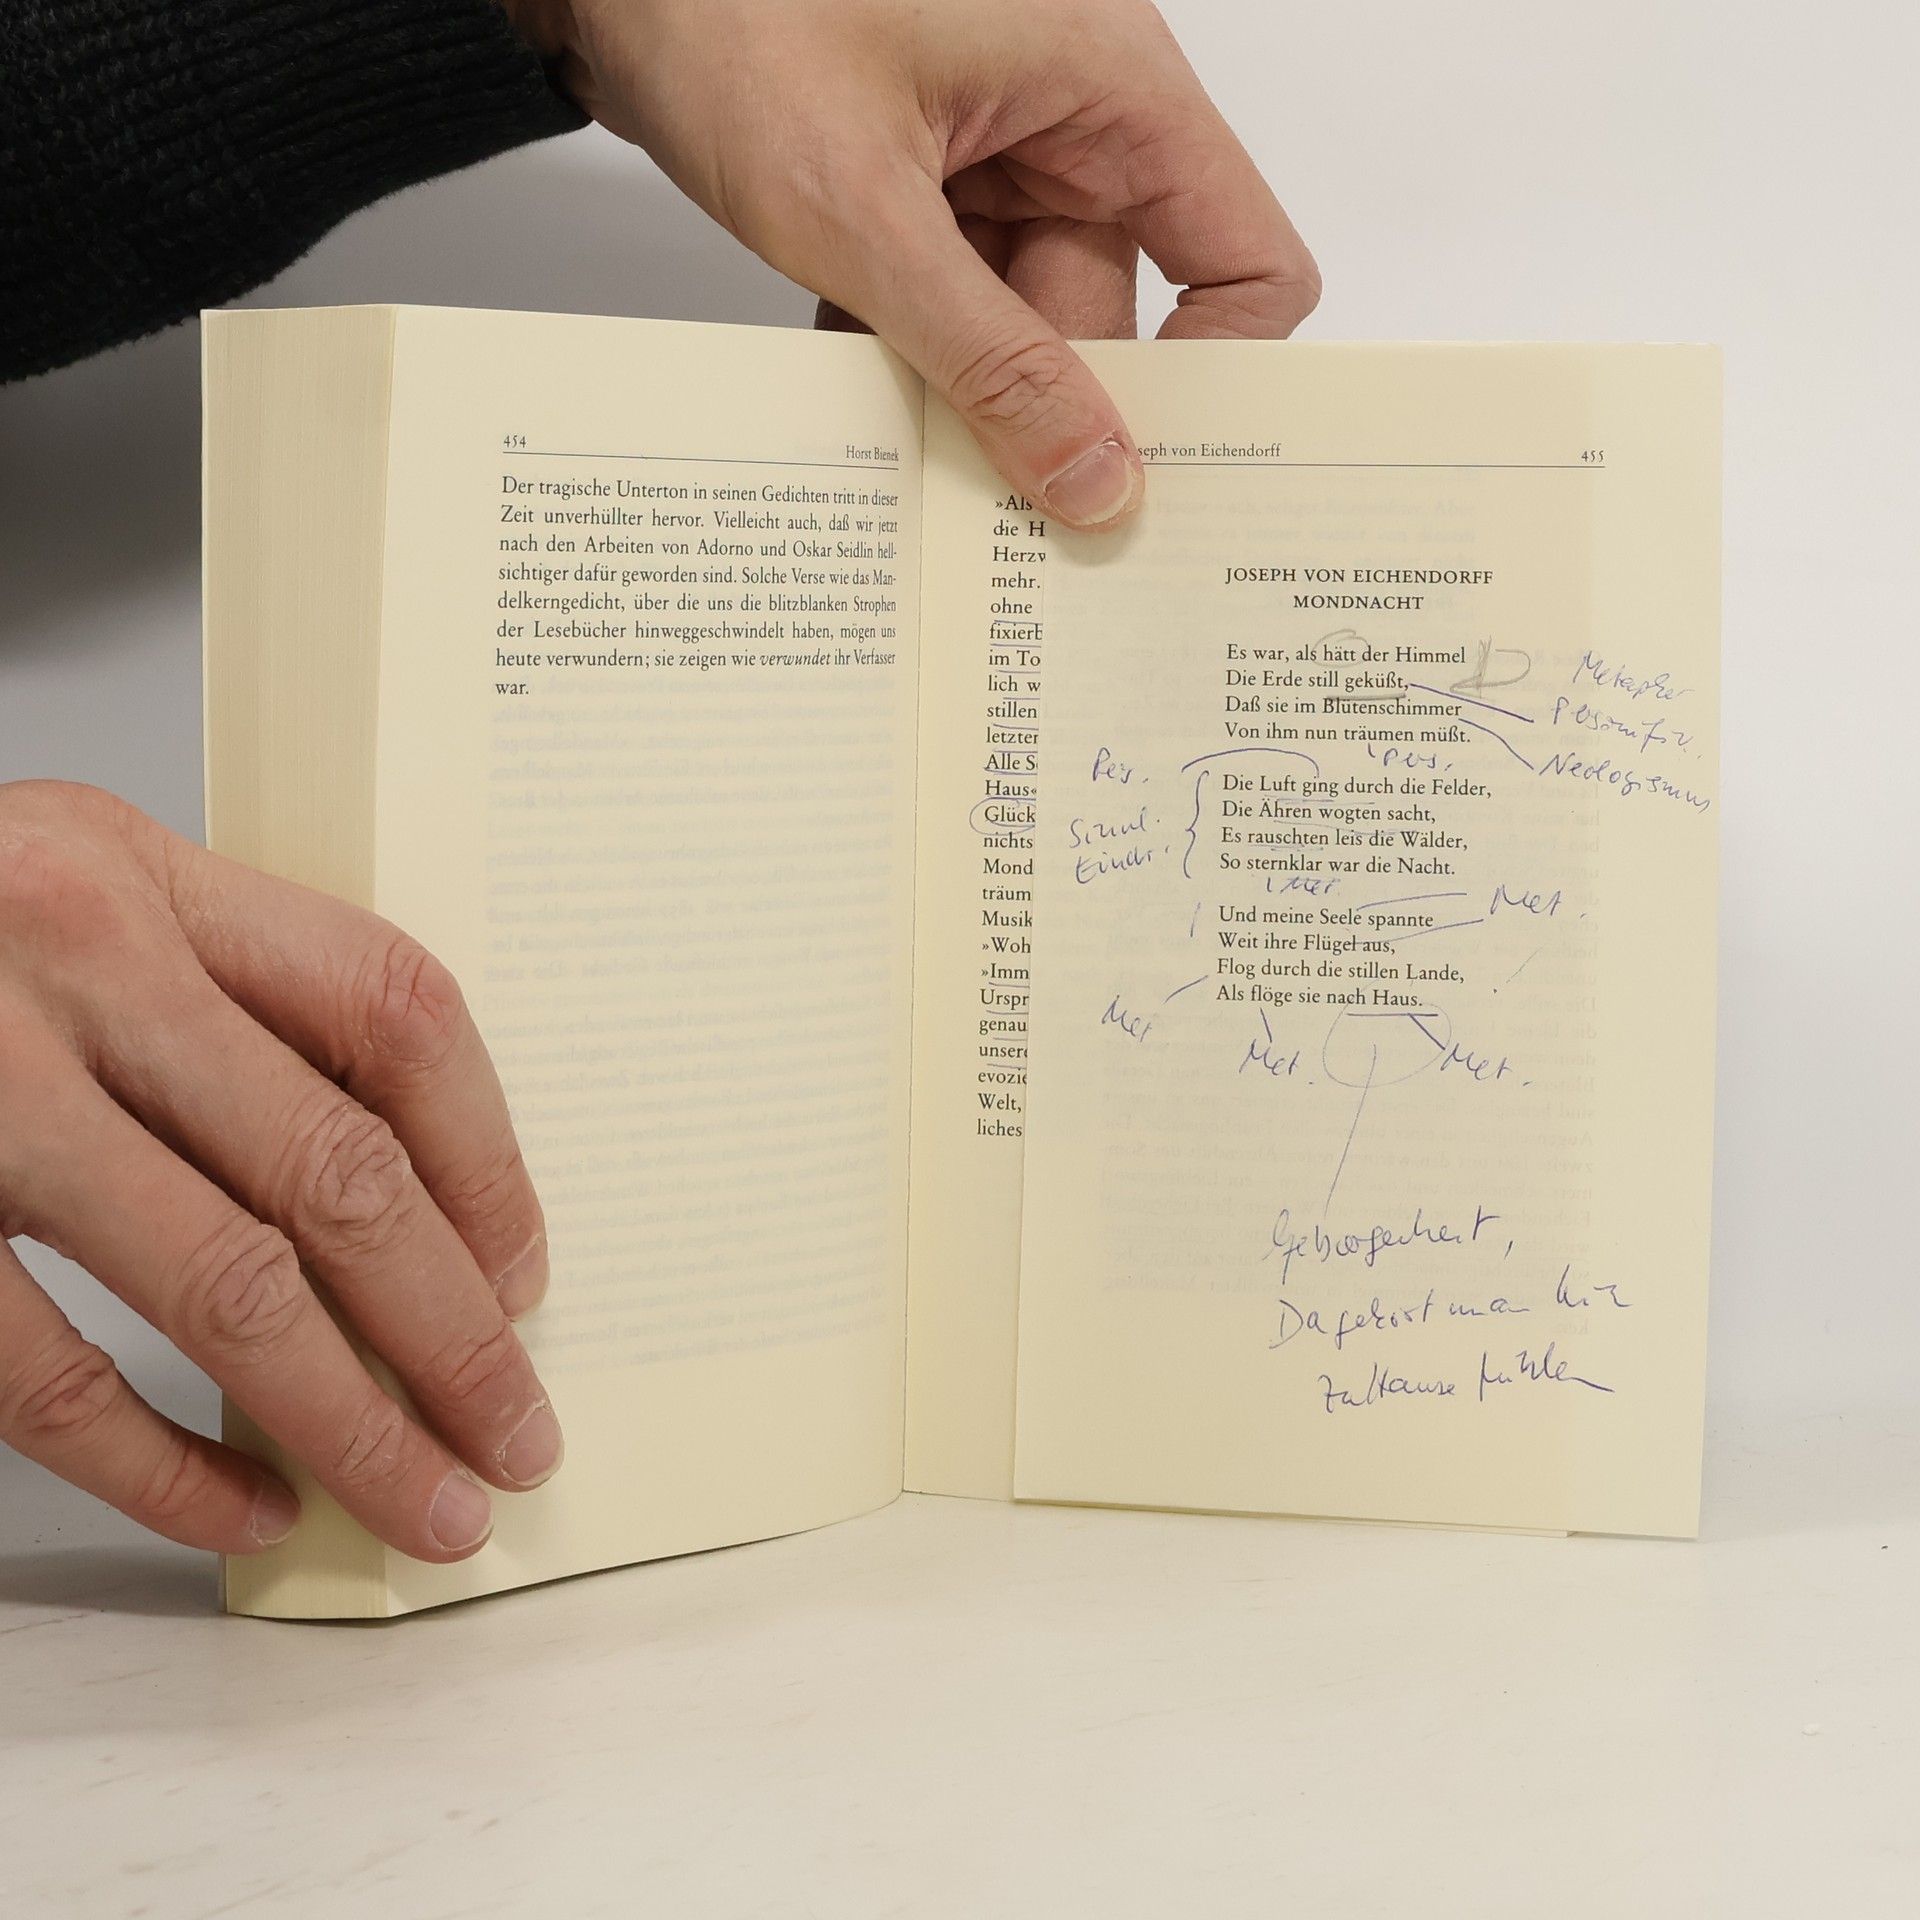 454
Horst Bienek
Der tragische Unterton in seinen Gedichten tritt in dieser
Zeit unverhüllter hervor. Vielleicht auch, daß wir jetzt
nach den Arbeiten von Adorno und Oskar Seidlin hell-
sichtiger dafür geworden sind. Solche Verse wie das Man-
delkerngedicht, über die uns die blitzblanken Strophen
der Lesebücher hinweggeschwindelt haben, mögen uns
heute verwundern; sie zeigen wie verwundet ihr Verfasser
war.
»Als
die H
Herzw
mehr.
ohne
fixierb
im To
lich w
stillen
letzter
Alle S
Haus«
Glück
nichts
Mond
träum
Musik
»Woh
»Imm
Urspr
genau
unsere
evozie
Welt,
liches
seph von Eichendorff
455
JOSEPH VON EICHENDORFF
MONDNACHT
Es war, als hätt der Himmel
Die Erde still geküßt,
Daß sie im Blütenschimmer
Von ihm nun träumen müßt.
Metapher
Personifiz.
Neologismus
Pers.
Pers.
Die Luft ging durch die Felder,
Die Ähren wogten sacht,
Es rauschten leis die Wälder,
So sternklar war die Nacht.
Sinnl.
Eindr.
Met.
Met.
Und meine Seele spannte
Weit ihre Flügel aus,
Flog durch die stillen Lande,
Als flöge sie nach Haus.
Met
Met.
Met.
Geborgenheit,
Da gehört man hin
zuHause fühlen